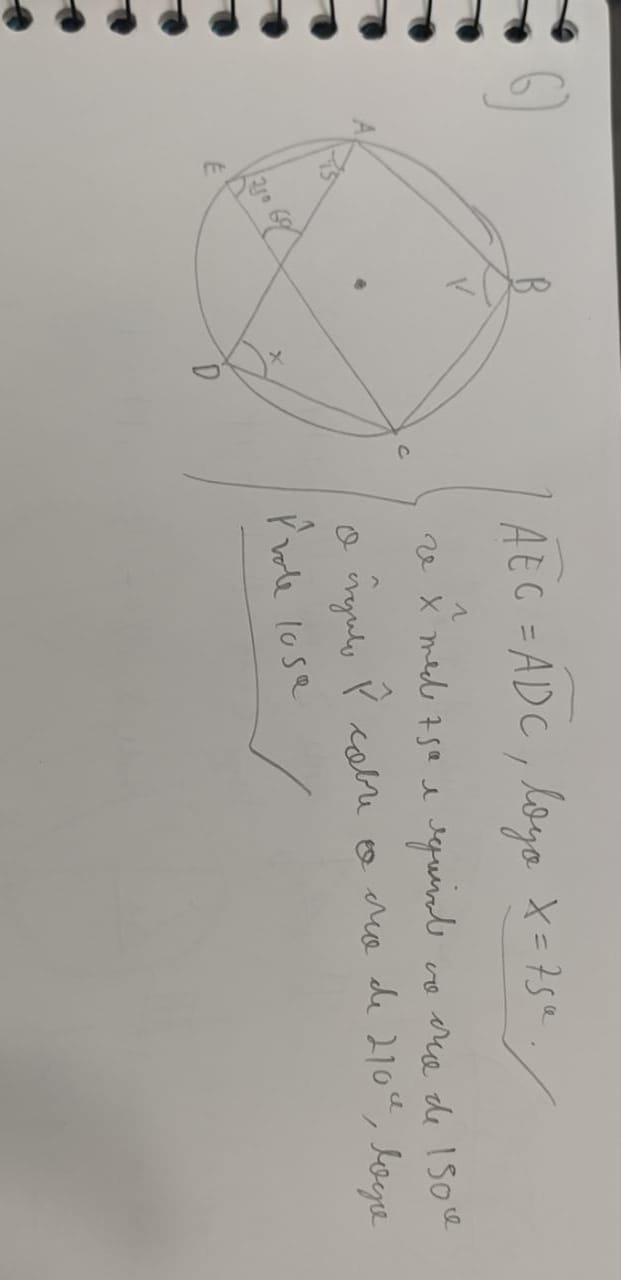 6)
A
B
V
45
E
75º 60
x
D
C
AEC = ADC, logo X = 75º.
se x̂ mede 75º e equivale ao arco de 150º
o ângulo V̂ cobre o arco de 210º, logo
V̂ vale 105º